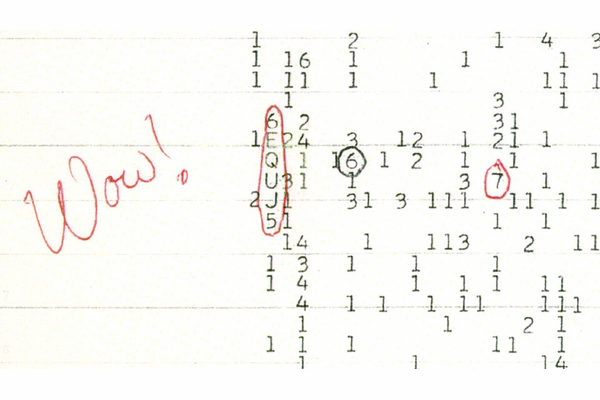 1 2 1 4 3
1 16 1 1 1
1 11 1 1 11 1
1 3 1
6 2 31
E 24 3 12 1 21 1
Q 1 16 1 2 1 1 1
U 31 1 3 7 1
2 J 1 31 3 111 11 1 1
5 1 1 1
14 1 113 2 11
1 3 1 1 1
1 4 1 1 1 11
4 1 1 1 11 111
1 1 2 1
1 1 1 11 1
1 1 14
Wow!